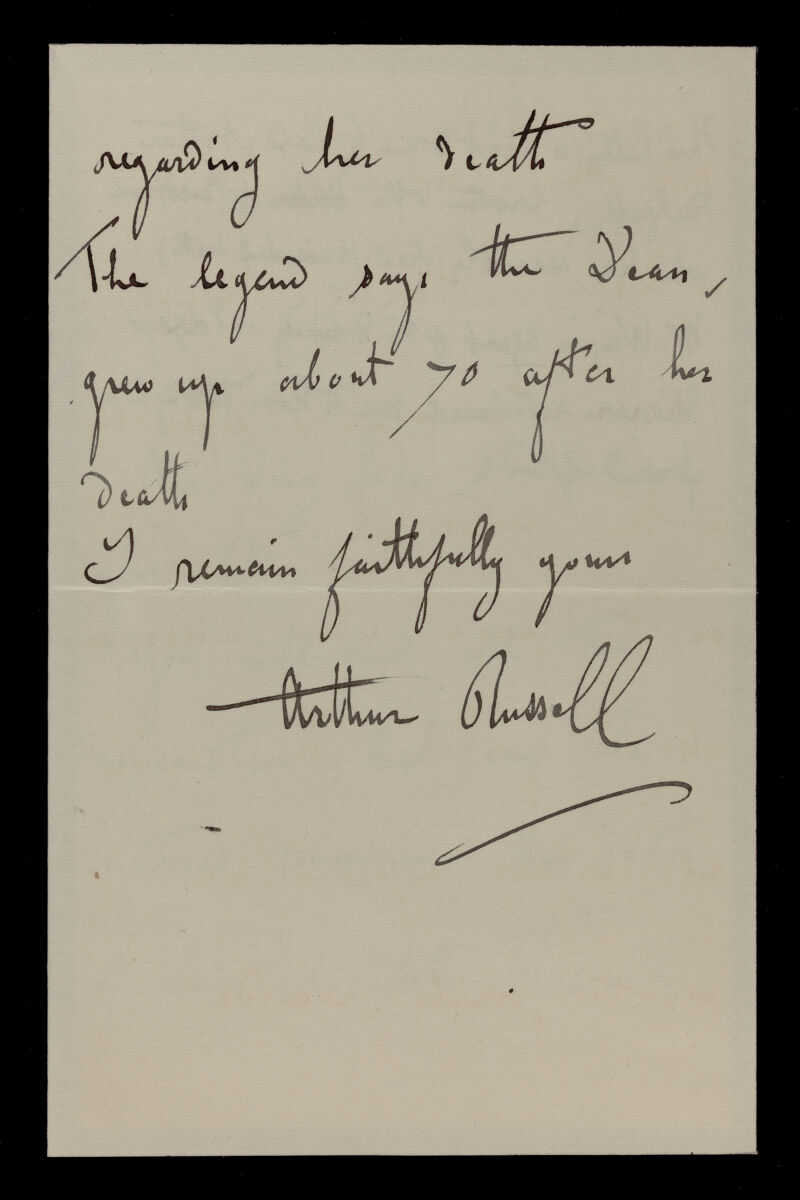 regarding her death
The legend says the Dean,
grew up about 70 after her
death
I remain faithfully yours
Arthur Russell